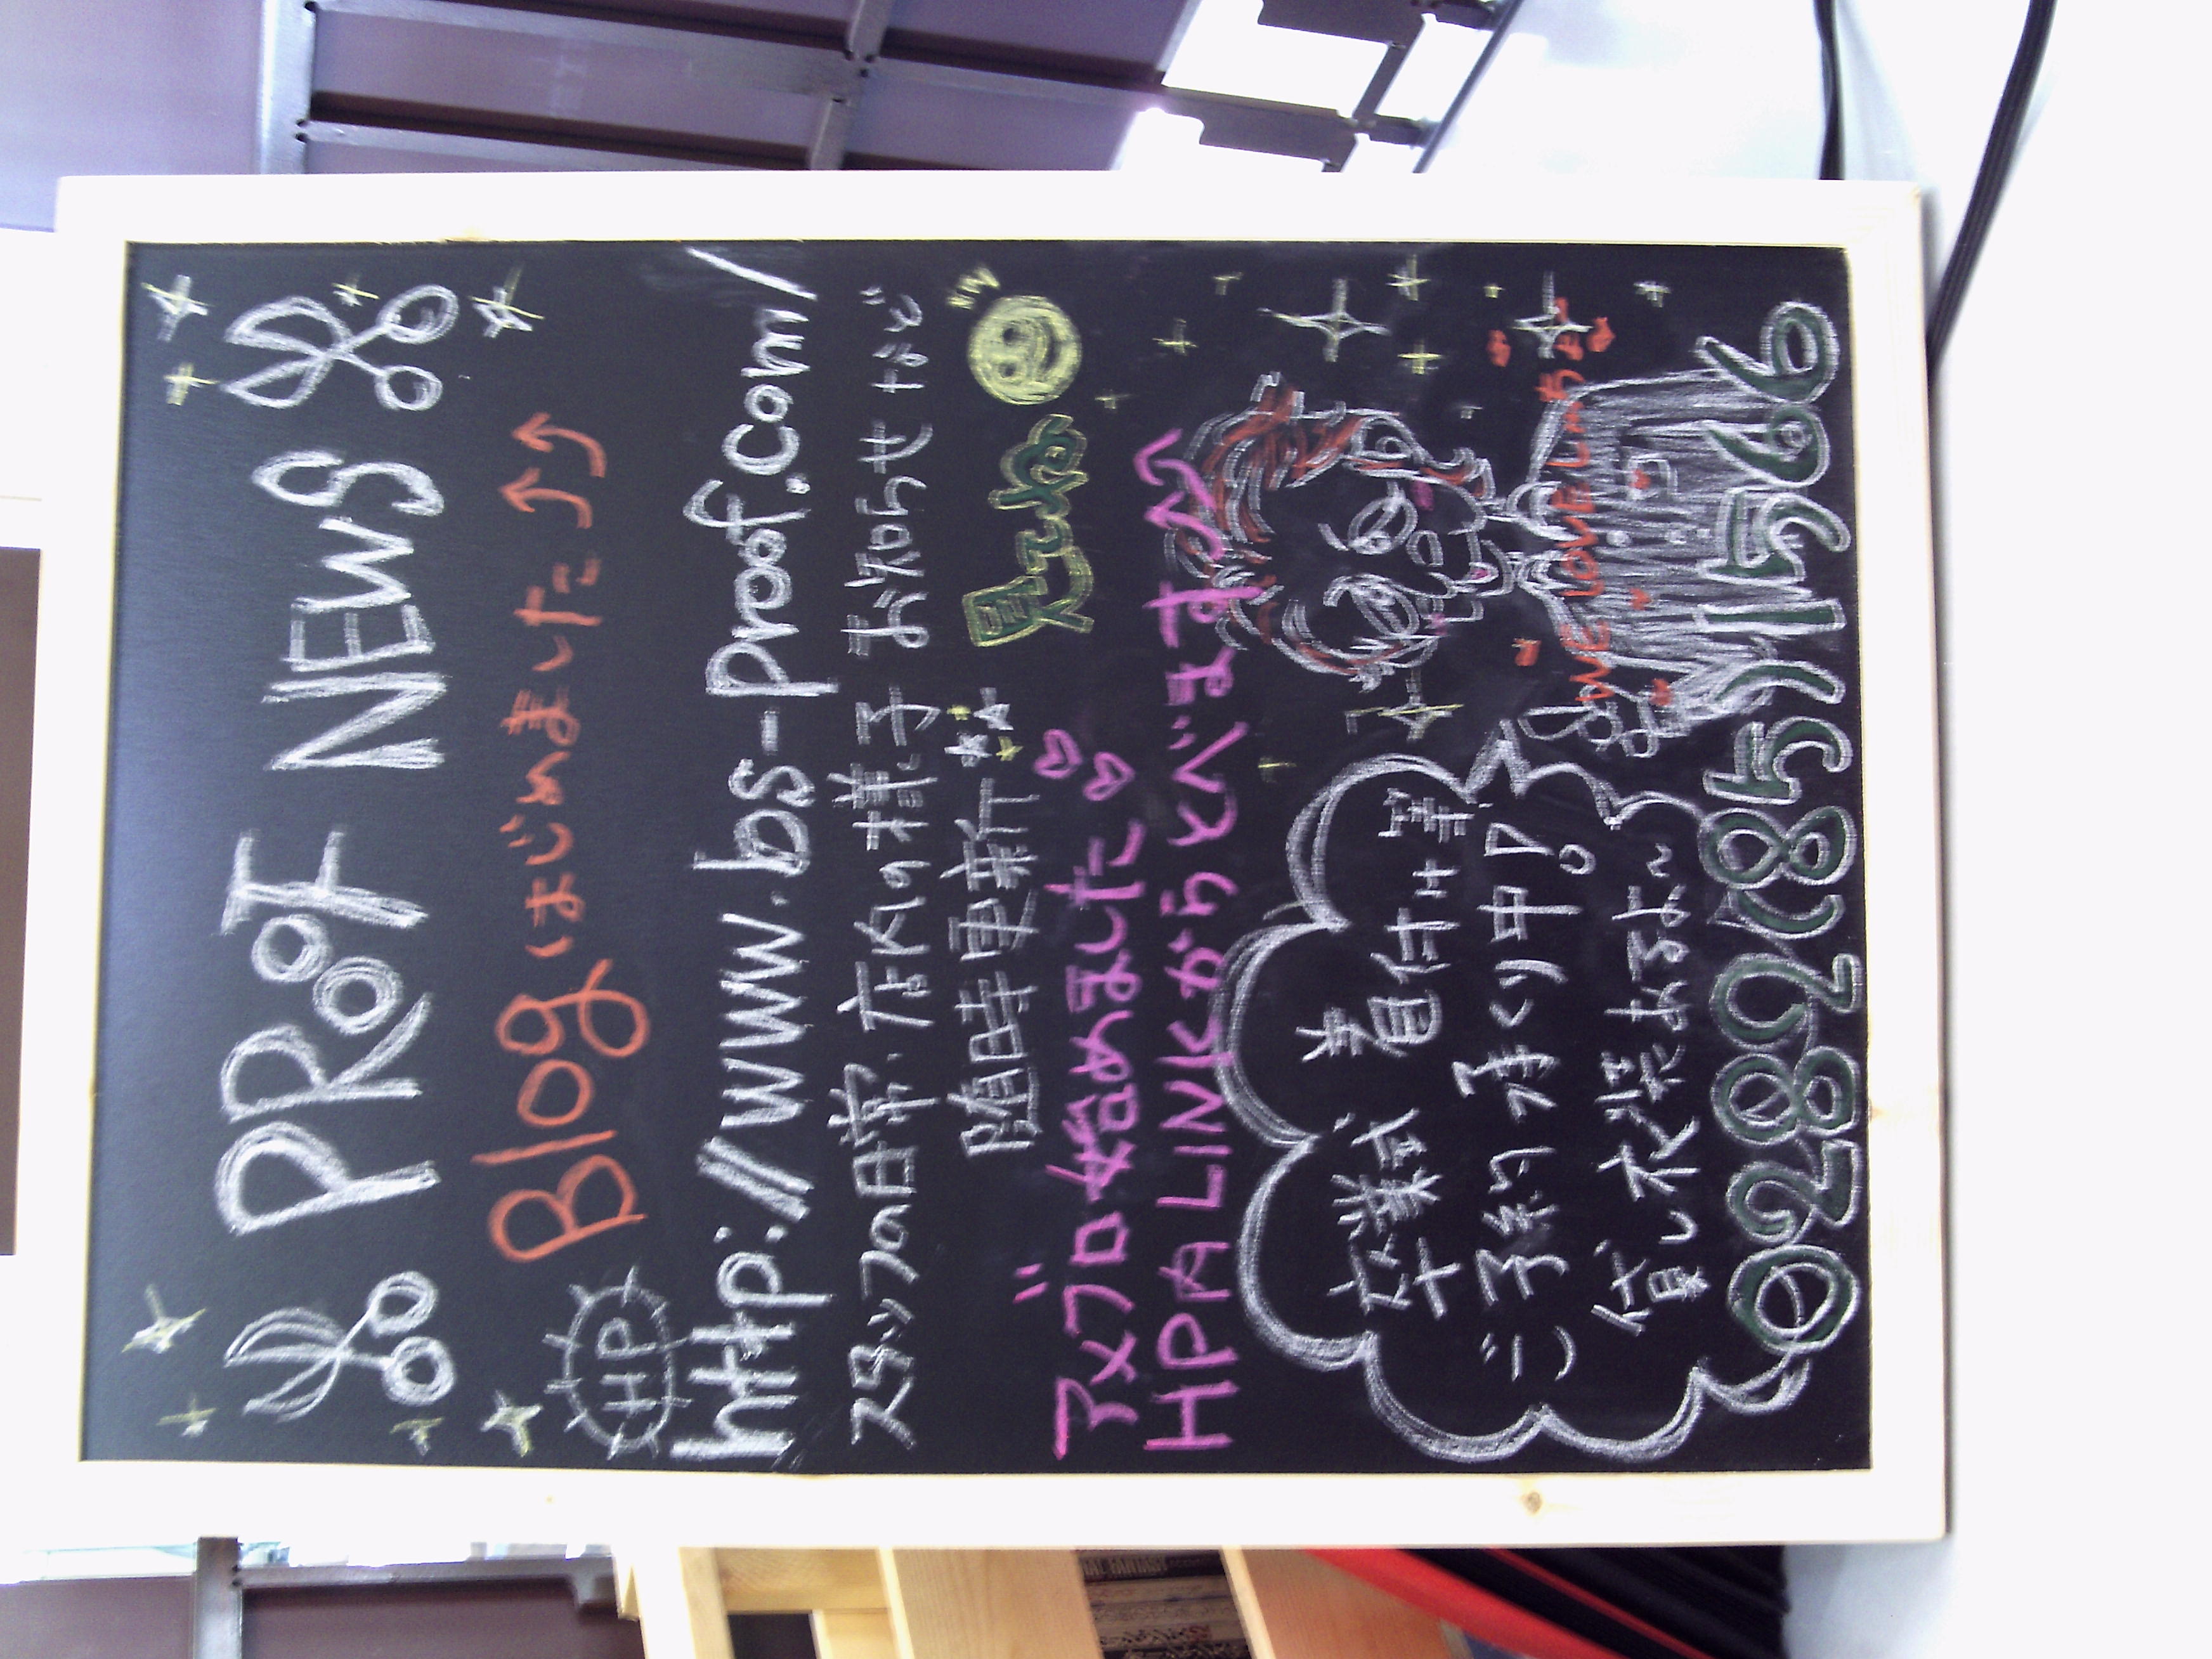 PRooF NEWS
Blogはじめました
HP
http://www.bs-proof.com/
スタッフの日常・店内の様子 お知らせなど
随時更新
アメブロ始めました
HPA LINKからとべます
卒業式 着付
ご予約 承り中!
貸し衣装あるよ~
WE LOVE
0282(85)1566